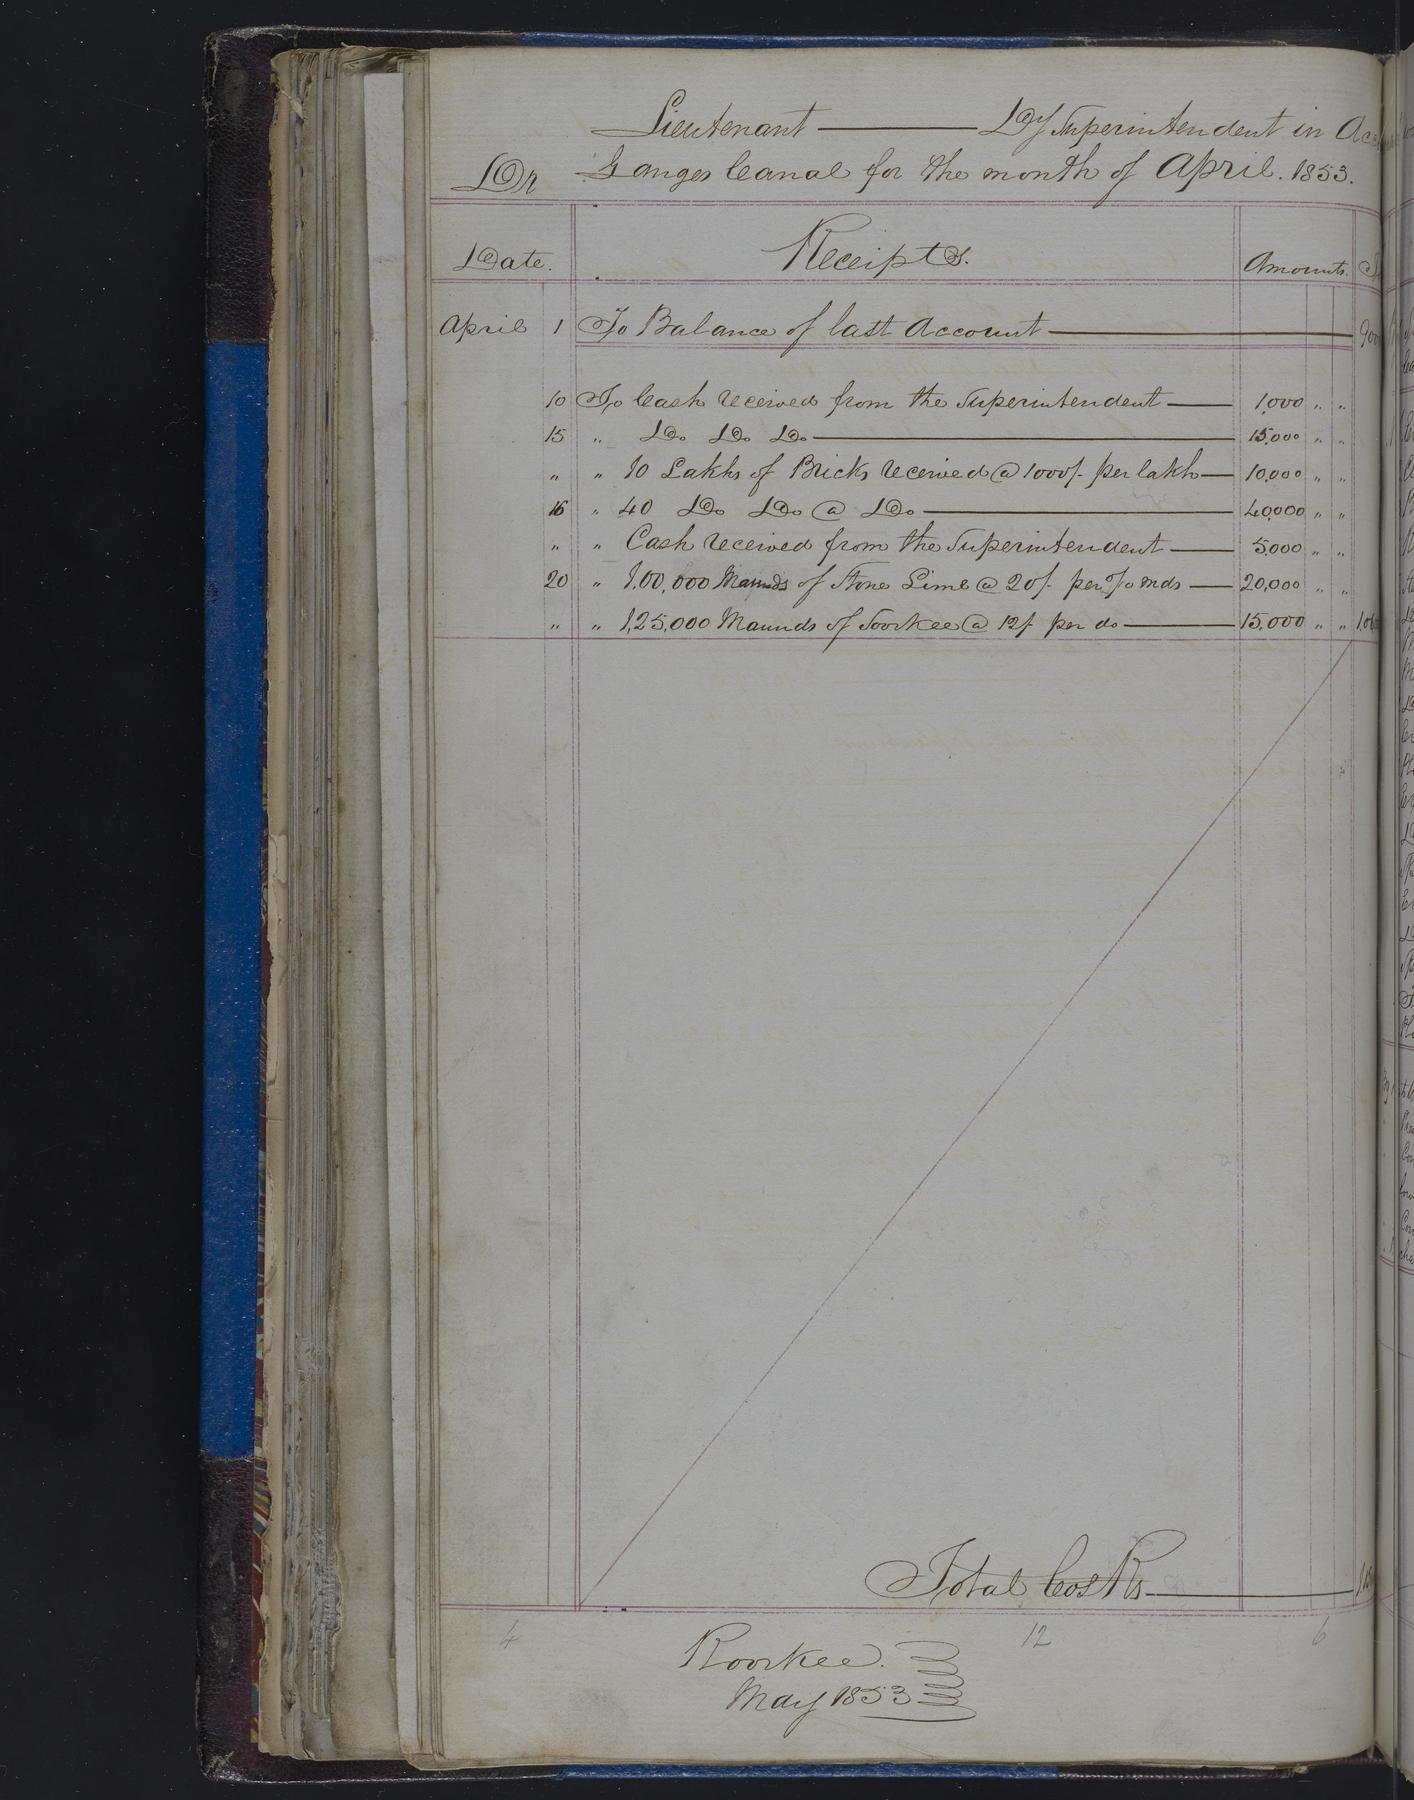 Lieutenant ——— Dy Superintendent in Acc
Dr Ganges Canal for the month of April. 1853.
Date. Receipts. Amounts.
April 1 To Balance of last Account ——— 900
10 To Cash received from the Superintendent — 1,000 „ „
15 „ Do Do Do ——— 15,000 „ „
„ „ 10 Lakhs of Bricks received @ 1000/- per lakh — 10,000 „ „
16 „ 40 Do Do @ Do ——— 40,000 „ „
„ „ Cash received from the Superintendent — 5,000 „ „
20 „ 1,00,000 Maunds of Stone Lime @ 20/- per % mds — 20,000 „ „
„ „ 1,25,000 Maunds of Soorkee @ 12/- per do — 15,000 „ „ 1,06
Total Cos Rs ———
4 12 6
Roorkee.
May 1853